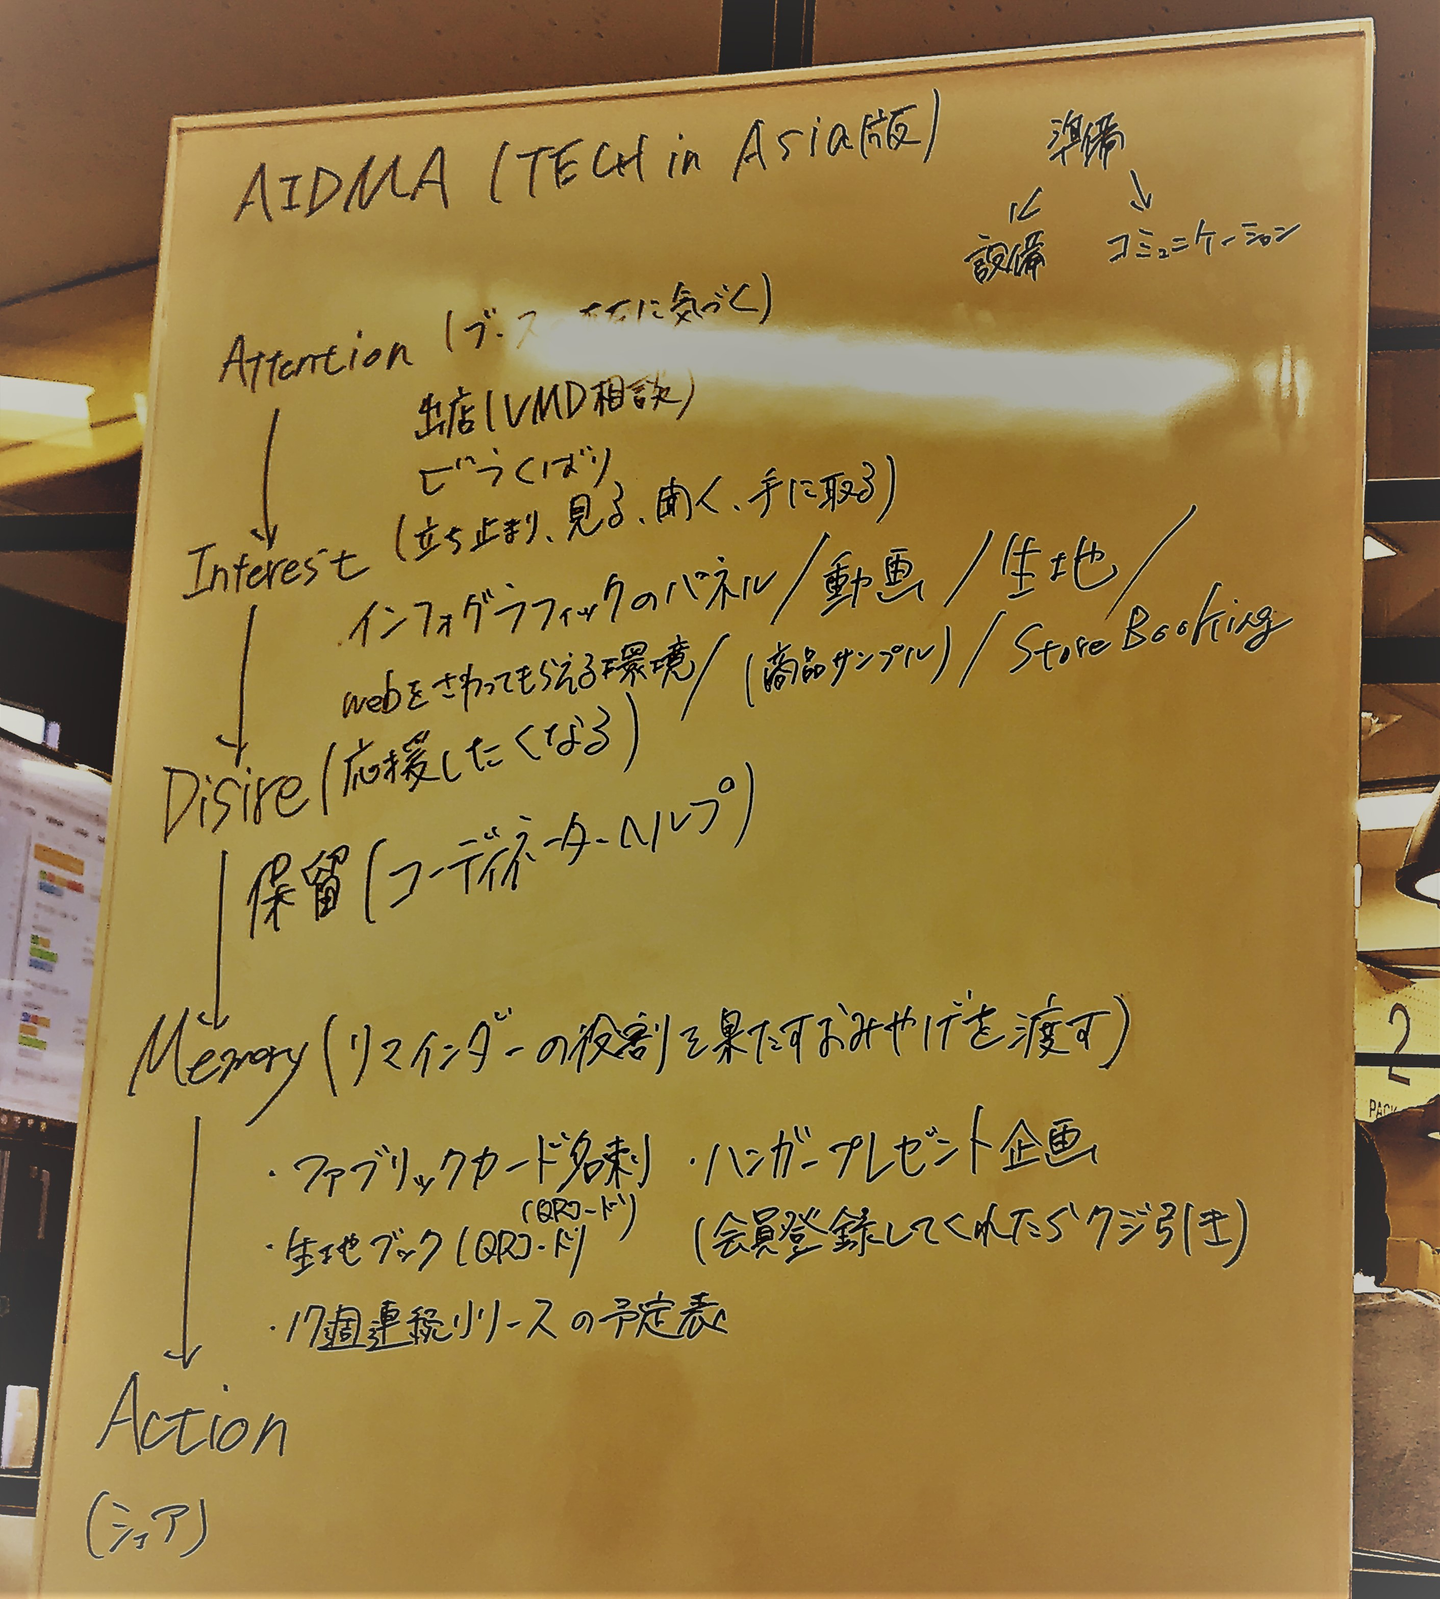 AIDMA (TECH in Asia版)
準備
設備 コミュニケーション
Attention (ブース に気づく)
出店(VMD相談)
びらくばり
Interest (立ち止まり、見る、聞く、手に取る)
インフォグラフィックのパネル/動画/生地/
webをさわってもらえる環境/(商品サンプル)/Store Booking
Disire(応援したくなる)
保留(コーディネーターヘルプ)
Memory(リマインダーの役割を果たすおみやげを渡す)
・ファブリックカード名刺
(QRコード)
・生地ブック(QRコード)
・17週連続リリースの予定表
・ハンガープレゼント企画
(会員登録してくれたらクジ引き)
Action
(シェア)
2